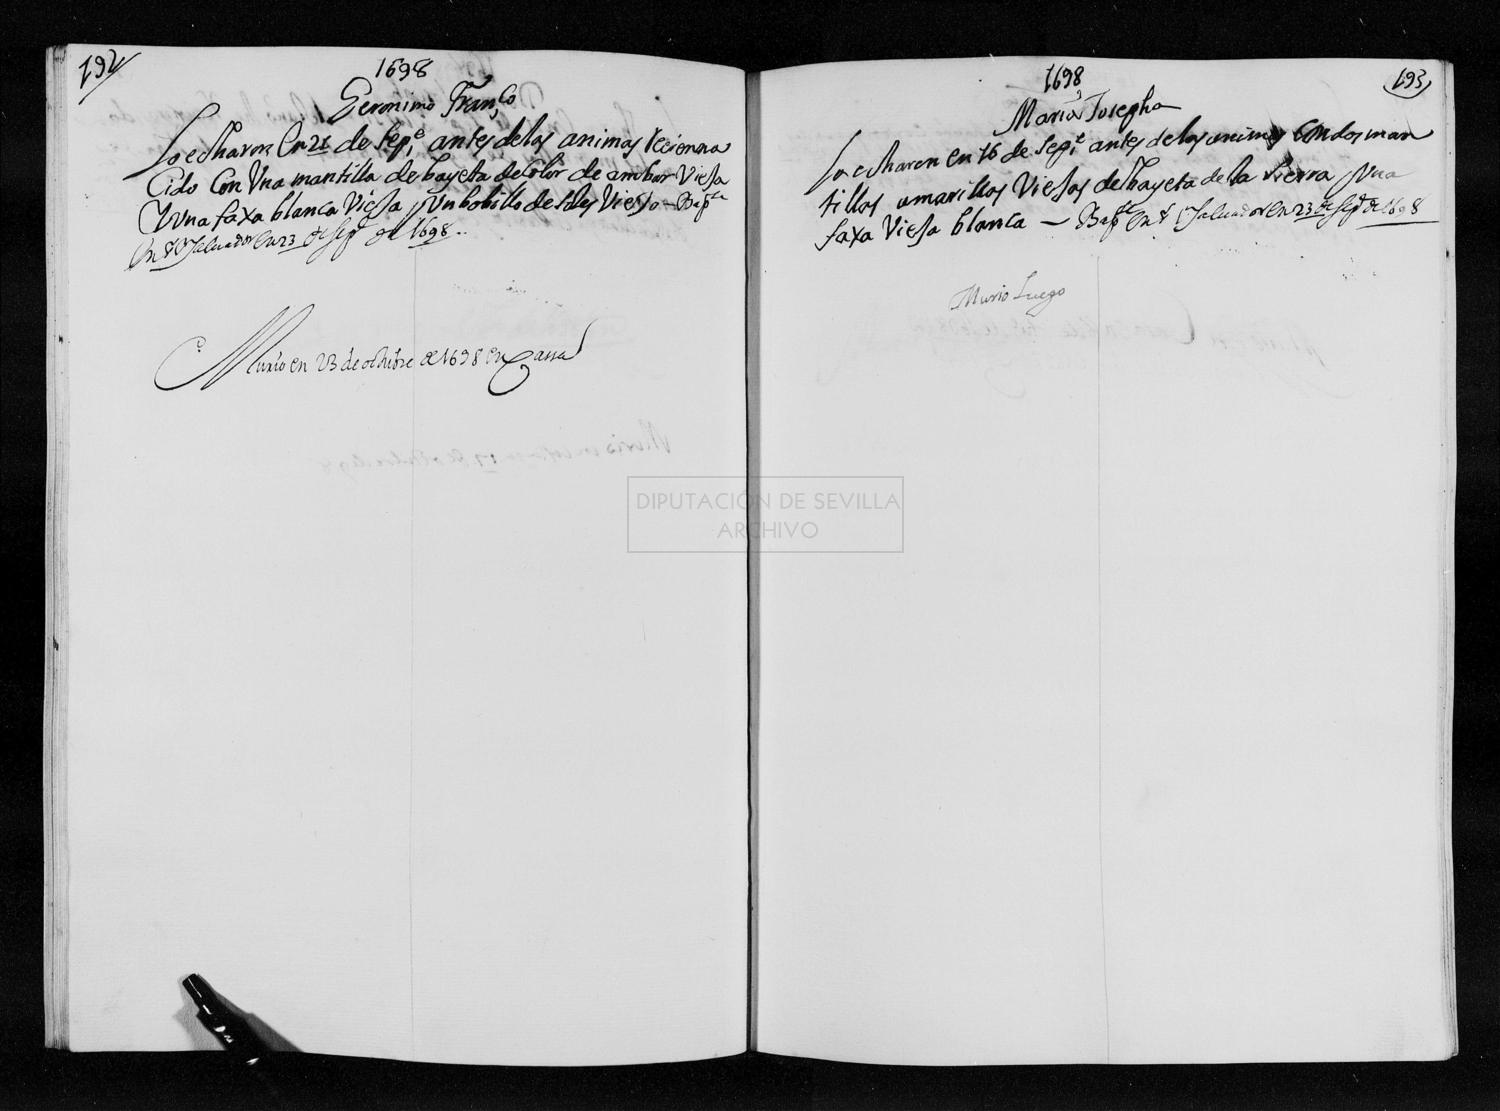 192
1698
Geronimo Franco
Lo echaron en 21 de Sepe antes de las animas recienna
cido con Una mantilla de bayeta de color de ambar Vieja
Y Una faxa blanca Vieja y Un bobillo de Viejo - Bapte
En Sr Salvador en 23 de Sepe de 1698..
Murio en 23 de octubre de 1698 en Cassa
1698
193
Maria Josepha
La echaron en 16 de Sepe antes de las animas con dos man
tillas amarillas Viejas de bayeta de la tierra y Una
faxa Vieja blanca - Bapte en Sr Salvador en 23 de Sepe de 1698
Murio Luego
DIPUTACIÓN DE SEVILLA
ARCHIVO